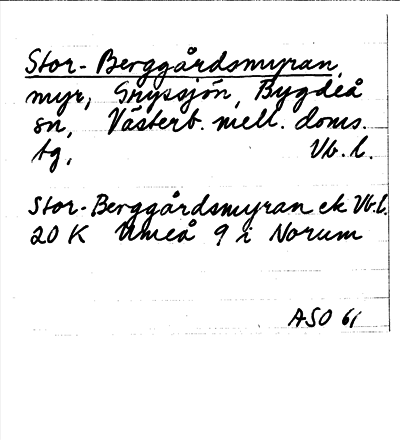 Stor-Berggårdsmyran,
myr, Gryssjön, Bygdeå
sn, Västerb. mell. doms.
tg, Vb. l.
Stor-Berggårdsmyran ek Vb.l.
20 K Umeå 9 i Norum
ASO 61